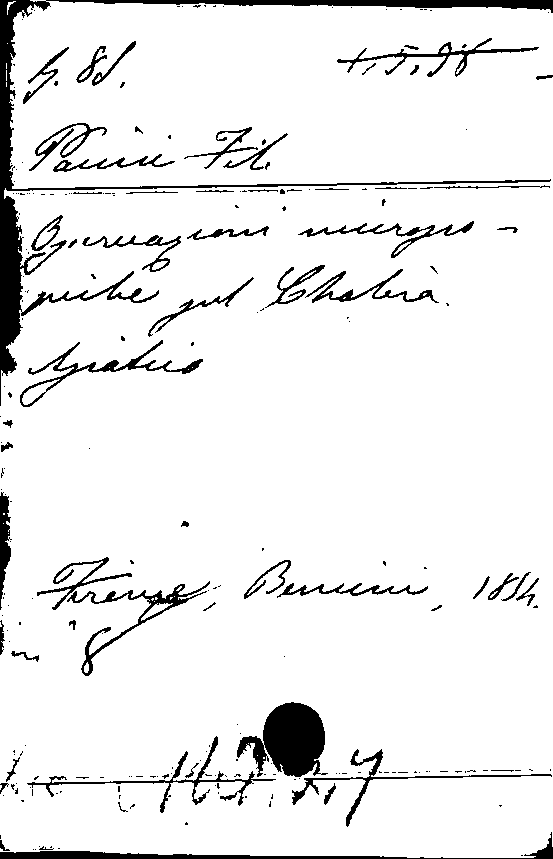 Pacini Fil.
Osservazioni microsco-
piche sul Cholera
Asiatico
Firenze, Bencini, 1854.
in 8